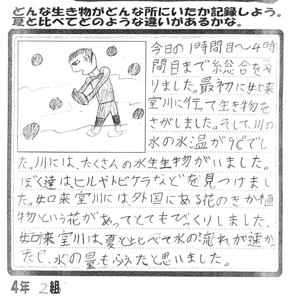 どんな生き物がどんな所にいたか記録しよう。
夏と比べてどのような違いがあるかな。
今日の1時間目〜4時
間目まで総合をや
りました。最初に
川に行って生き物を
さがしました。そして、川の
水の水温が9℃でし
た。川には、たくさんの水生生物がいました。
ぼく達は、ヒルやトビケラなどを見つけまし
た。川には外国にある花のきか植
物という花があってとてもびっくりしました。
川は、夏と比べて水の流れが速か
たし、水の量もふえたと思いました。
4年 2組